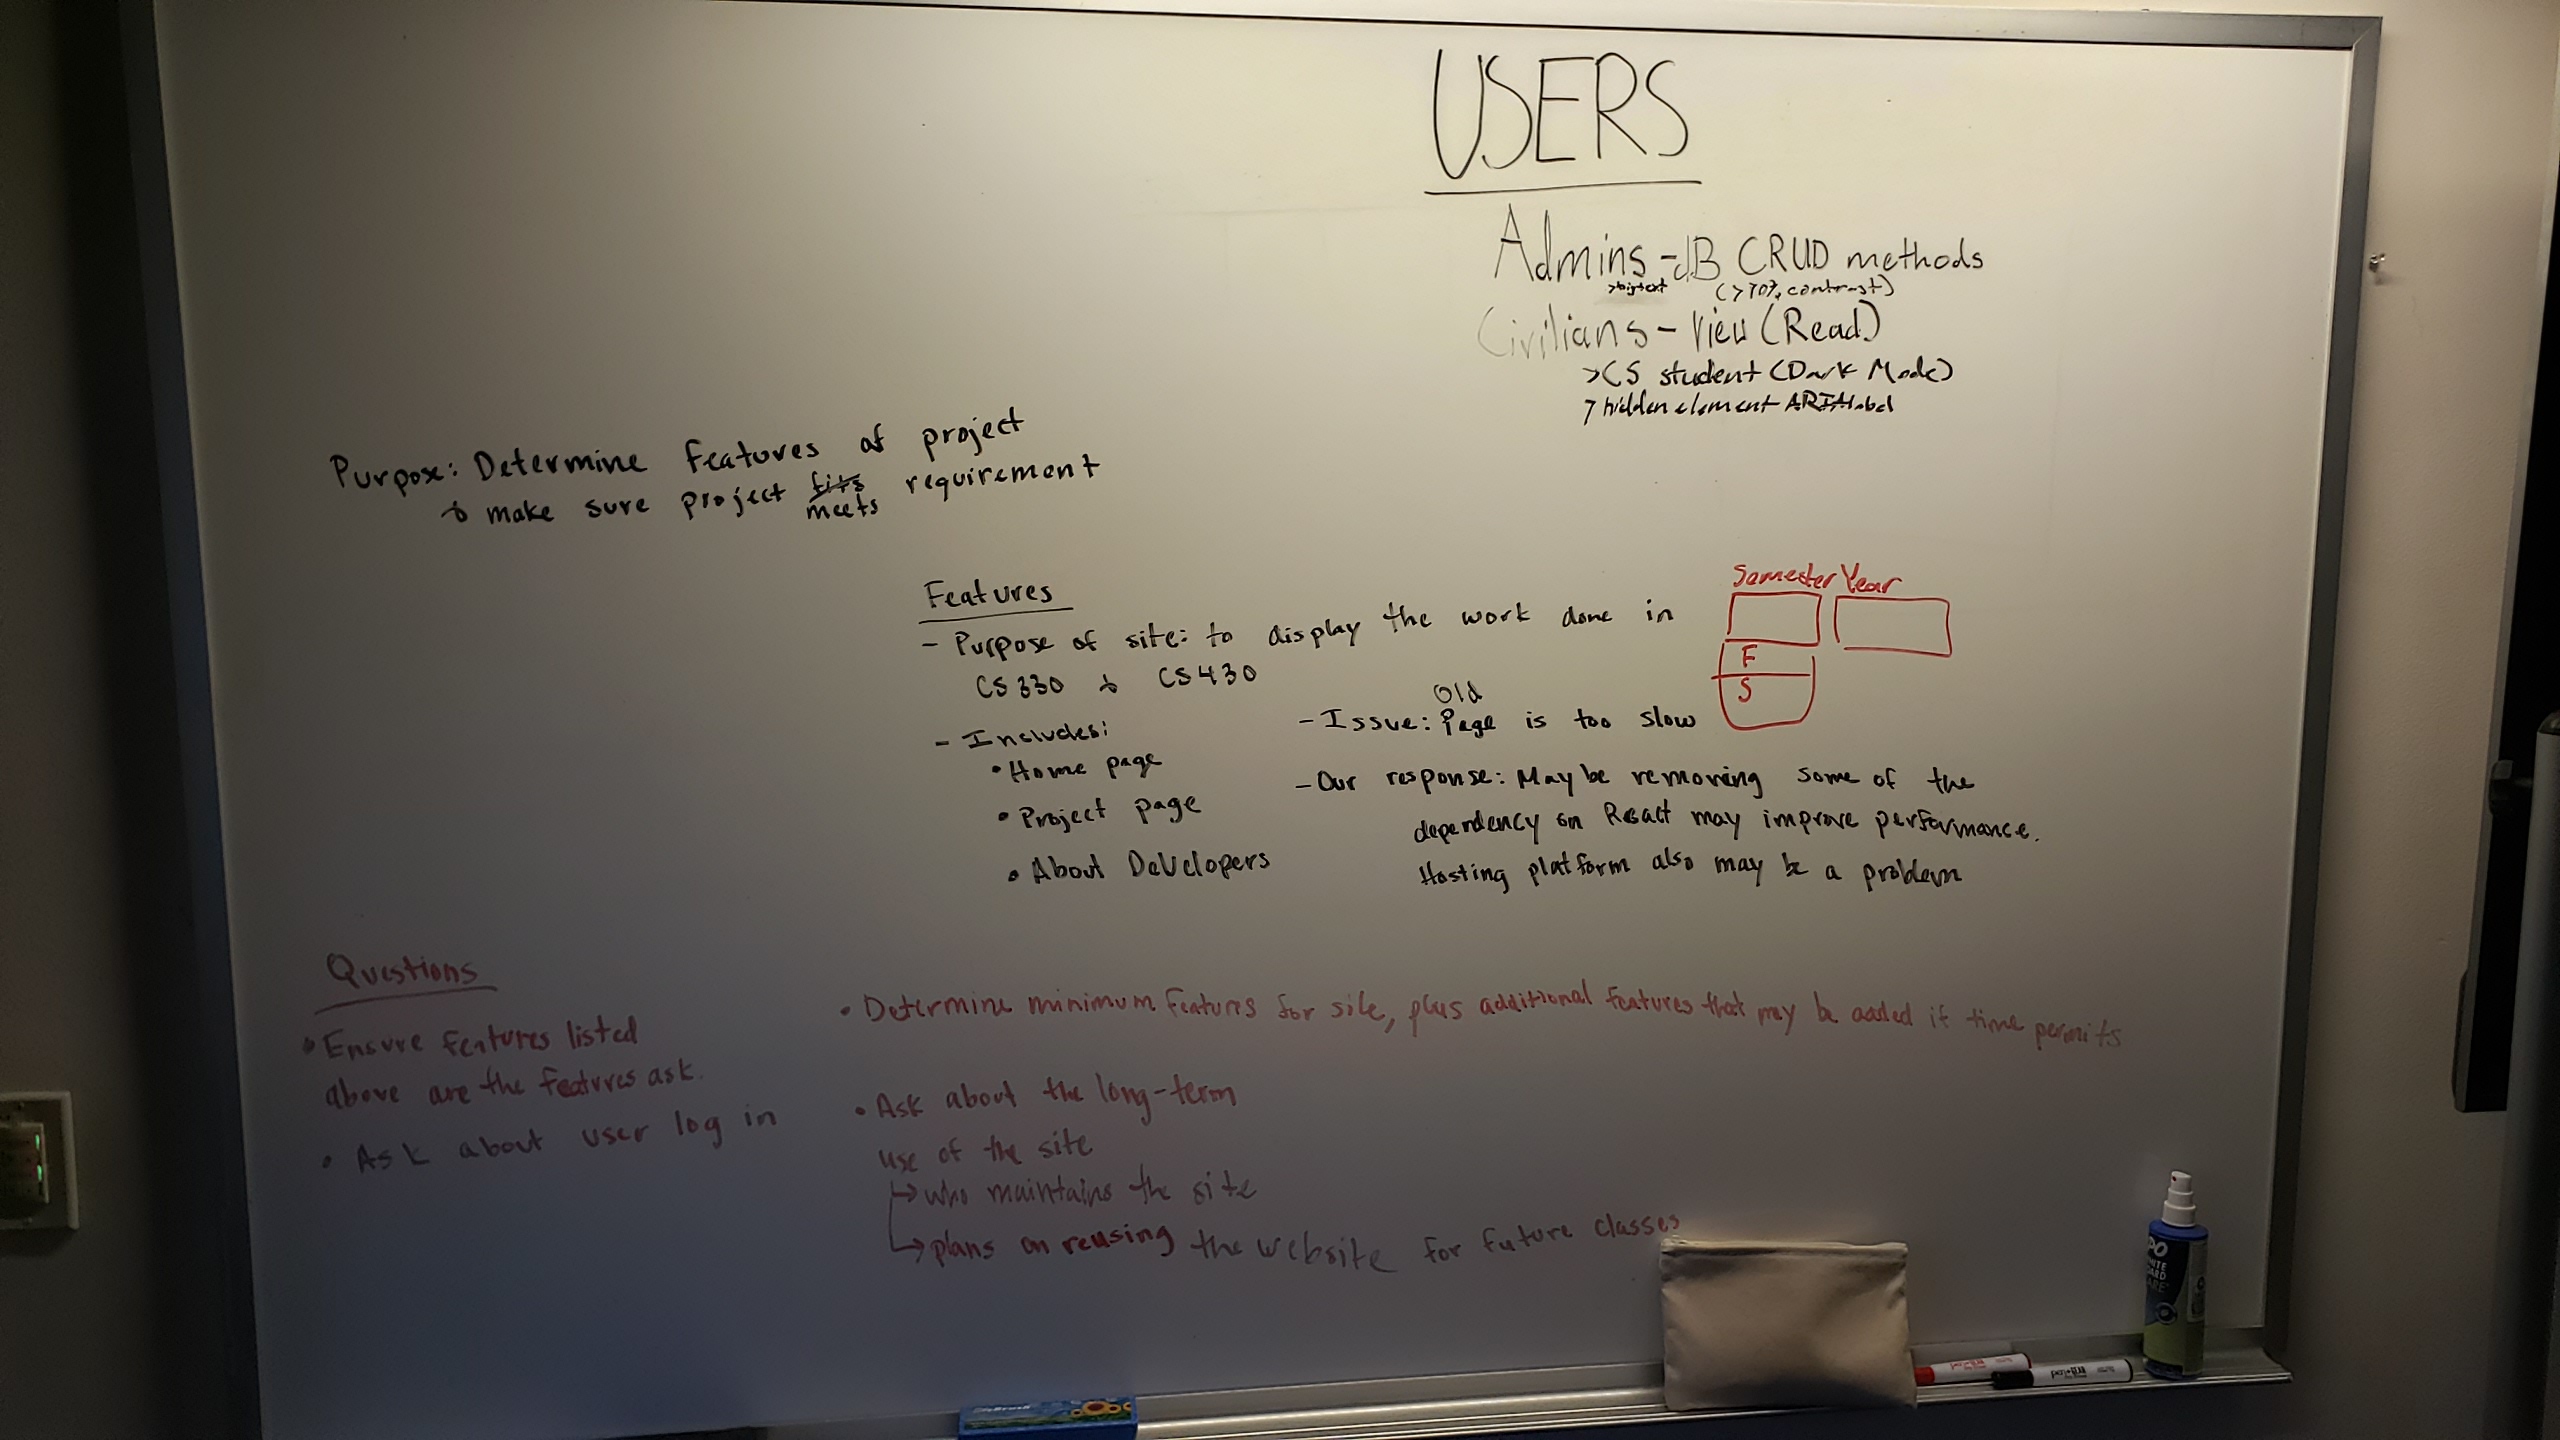 USERS
Admins - dB CRUD methods
>big text (>70% contrast)
Civilians - View (Read)
>CS student (Dark Mode)
>hidden element ARIA label
Purpose: Determine features of project
& make sure project fits meets requirement
Features
- Purpose of site: to display the work done in
CS 330 & CS 430
- Includes:
• Home page
• Project page
• About Developers
Semester Year
F
S
Old
- Issue: Page is too slow
- Our response: Maybe removing some of the
dependency on React may improve performance.
Hosting platform also may be a problem
Questions
• Ensure features listed
above are the features ask.
• Ask about user log in
• Determine minimum features for site, plus additional features that may be added if time permits
• Ask about the long-term
use of the site
↳ who maintains the site
↳ plans on reusing the website for future classes